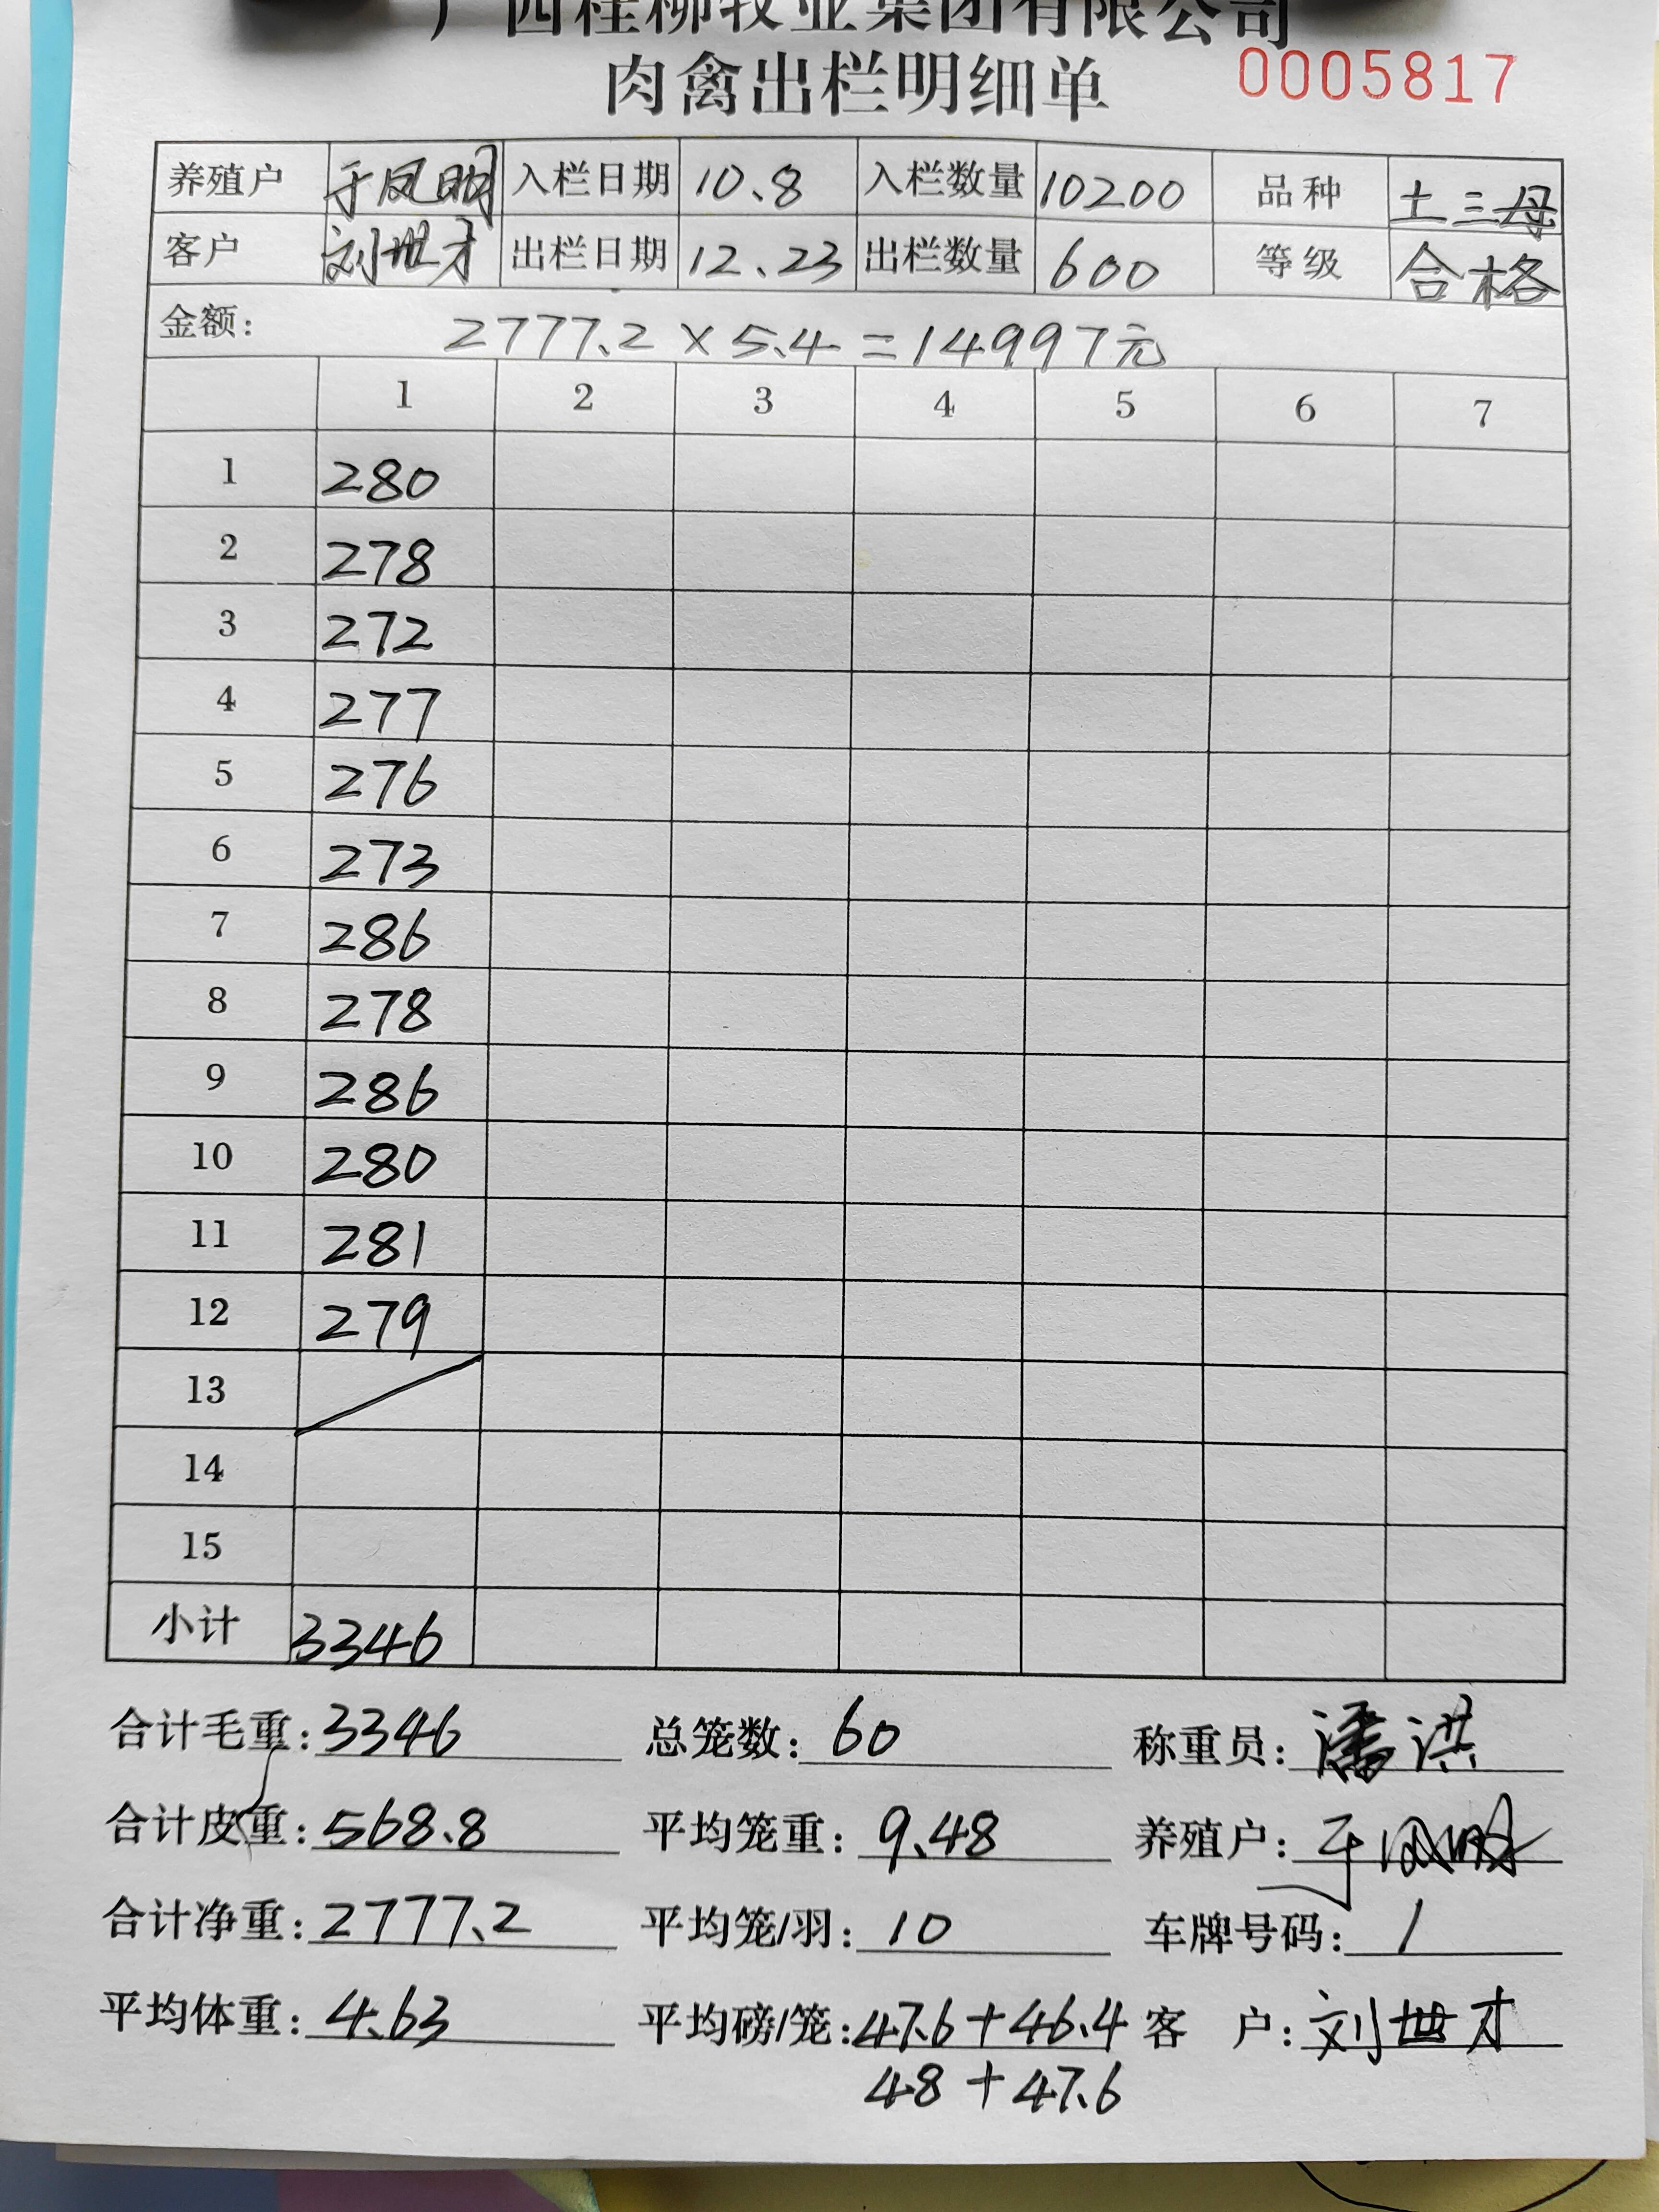 广西桂柳牧业集团有限公司
肉禽出栏明细单 0005817
养殖户 于凤明 入栏日期 10.8 入栏数量 10200 品种 土三母
客户 刘世才 出栏日期 12.23 出栏数量 600 等级 合格
金额: 2777.2×5.4=14997元
1 2 3 4 5 6 7
1 280
2 278
3 272
4 277
5 276
6 273
7 286
8 278
9 286
10 280
11 281
12 279
13
14
15
小计 3346
合计毛重:3346 总笼数:60 称重员:潘洪
合计皮重:568.8 平均笼重:9.48 养殖户:于凤明
合计净重:2777.2 平均笼/羽:10 车牌号码:1
平均体重:4.63 平均磅/笼:47.6+46.4 客 户:刘世才
48+47.6